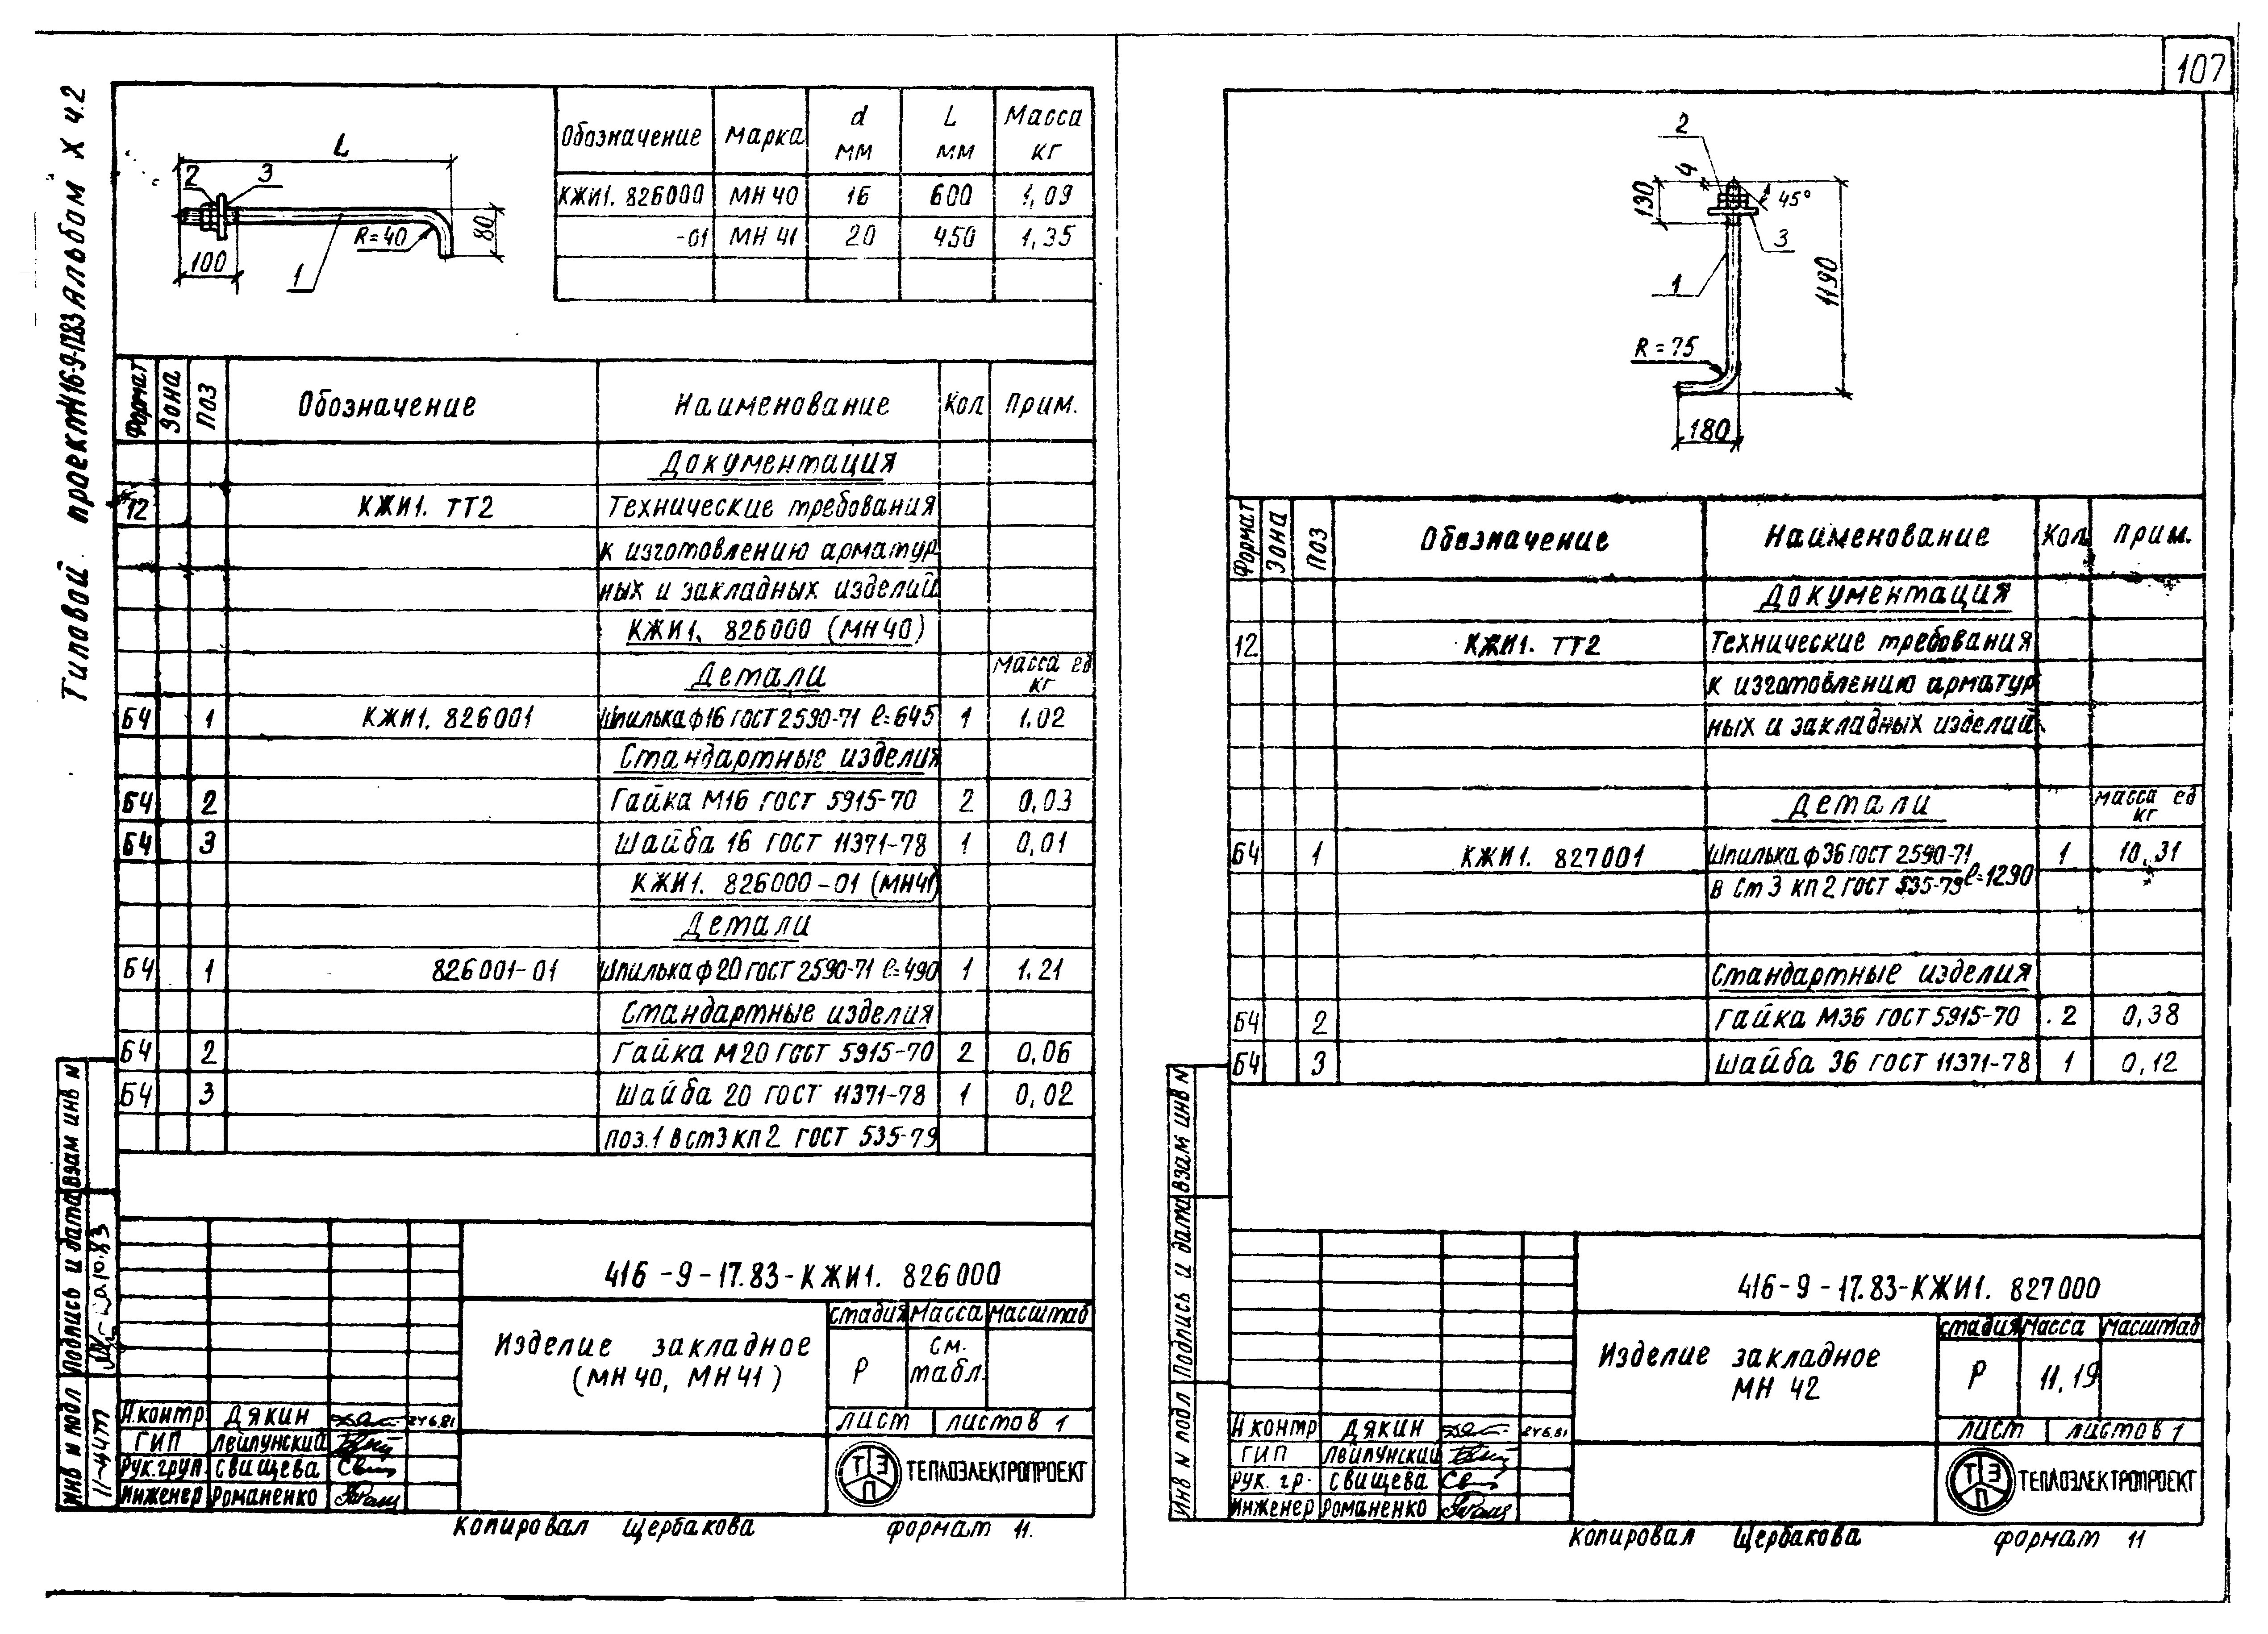 107
Типовой проект 416-9-17.83 Альбом X ч.2
L
2
3
R=40
80
100
1
Обозначение Марка d мм L мм Масса кг
КЖИ1. 826000 МН 40 16 600 1,09
-01 МН 41 20 450 1,35
Формат Зона Поз Обозначение Наименование Кол Прим.
Документация
12 КЖИ1. ТТ2 Технические требования
к изготовлению арматур
ных и закладных изделий
КЖИ1. 826000 (МН 40)
Детали Масса ед кг
БЧ 1 КЖИ1. 826001 Шпилька ф16 ГОСТ 2590-71 ℓ=645 1 1.02
Стандартные изделия
БЧ 2 Гайка М16 ГОСТ 5915-70 2 0,03
БЧ 3 Шайба 16 ГОСТ 11371-78 1 0,01
КЖИ1. 826000-01 (МН41)
Детали
БЧ 1 826001-01 Шпилька ф20 ГОСТ 2590-71 ℓ=490 1 1.21
Стандартные изделия
БЧ 2 Гайка М20 ГОСТ 5915-70 2 0,06
БЧ 3 Шайба 20 ГОСТ 11371-78 1 0,02
поз.1 В ст3 кп2 ГОСТ 535-79
Инв N подл Подпись и дата Взам инв N
416-9-17.83-КЖИ1. 826000
Изделие закладное
(МН 40, МН 41)
стадия Масса Масштаб
Р См. табл.
лист листов 1
Н.контр Дякин 24.6.81
ГИП Лейпунский
Рук.груп. Свищева
Инженер Романенко
ТЭП ТЕПЛОЭЛЕКТРОПРОЕКТ
Копировал Щербакова формат 11.
2
4
130
45°
3
1
1190
R=75
180
Формат Зона Поз Обозначение Наименование Кол. Прим.
Документация
12 КЖИ1. ТТ2 Технические требования
к изготовлению арматур
ных и закладных изделий
Детали масса ед кг
БЧ 1 КЖИ1. 827001 Шпилька ф36 ГОСТ 2590-71 1 10,31
В Ст 3 кп 2 ГОСТ 535-79 ℓ=1290
Стандартные изделия
БЧ 2 Гайка М36 ГОСТ 5915-70 2 0,38
БЧ 3 Шайба 36 ГОСТ 11371-78 1 0,12
Инв N подл Подпись и дата Взам инв N
416-9-17.83-КЖИ1. 827000
Изделие закладное
МН 42
стадия Масса Масштаб
Р 11,19
лист листов 1
Н контр Дякин 24.6.81
ГИП Лейпунский
Рук. гр. Свищева
Инженер Романенко
ТЭП ТЕПЛОЭЛЕКТРОПРОЕКТ
Копировал Щербакова формат 11